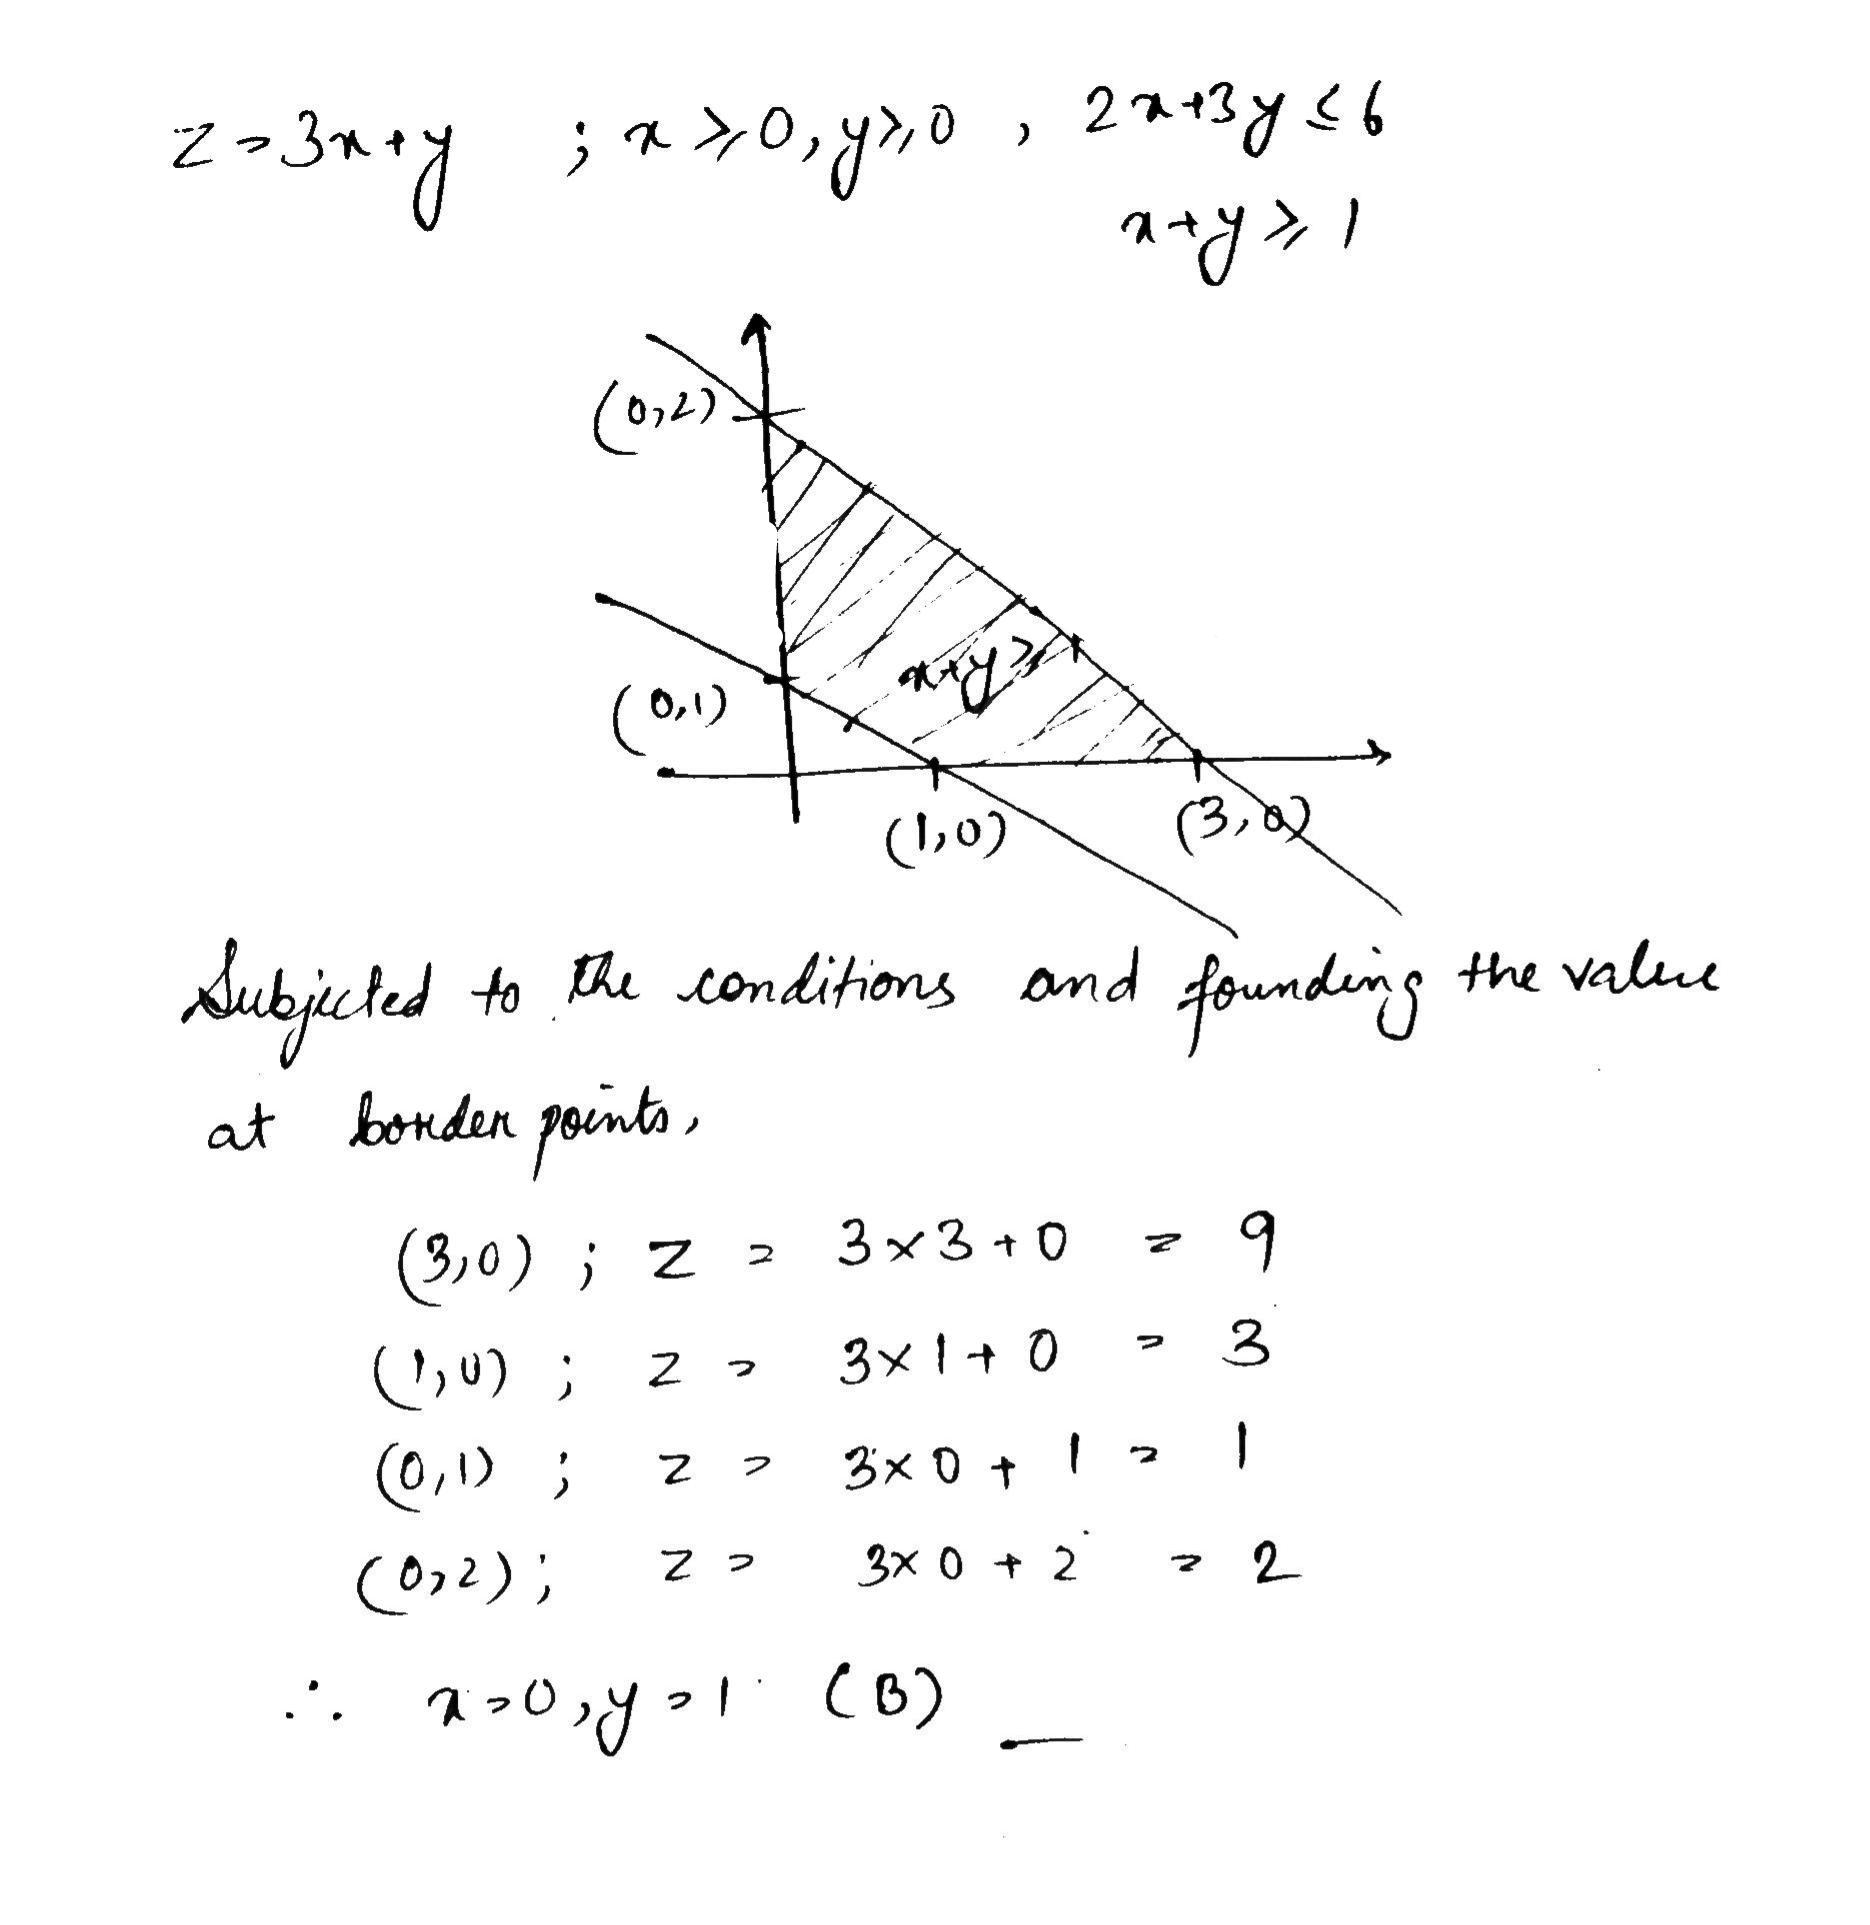 z = 3x+y ; x ≥ 0, y ≥ 0 , 2x+3y ≤ 6
x+y ≥ 1
(0,2)
x+y ≥ 1
(0,1)
(1,0)
(3,0)
Subjected to the conditions and founding the value
at border points,
(3,0) ; z = 3×3+0 = 9
(1,0) ; z = 3×1+0 = 3
(0,1) ; z = 3×0+1 = 1
(0,2) ; z = 3×0+2 = 2
∴ x=0, y=1 (B)